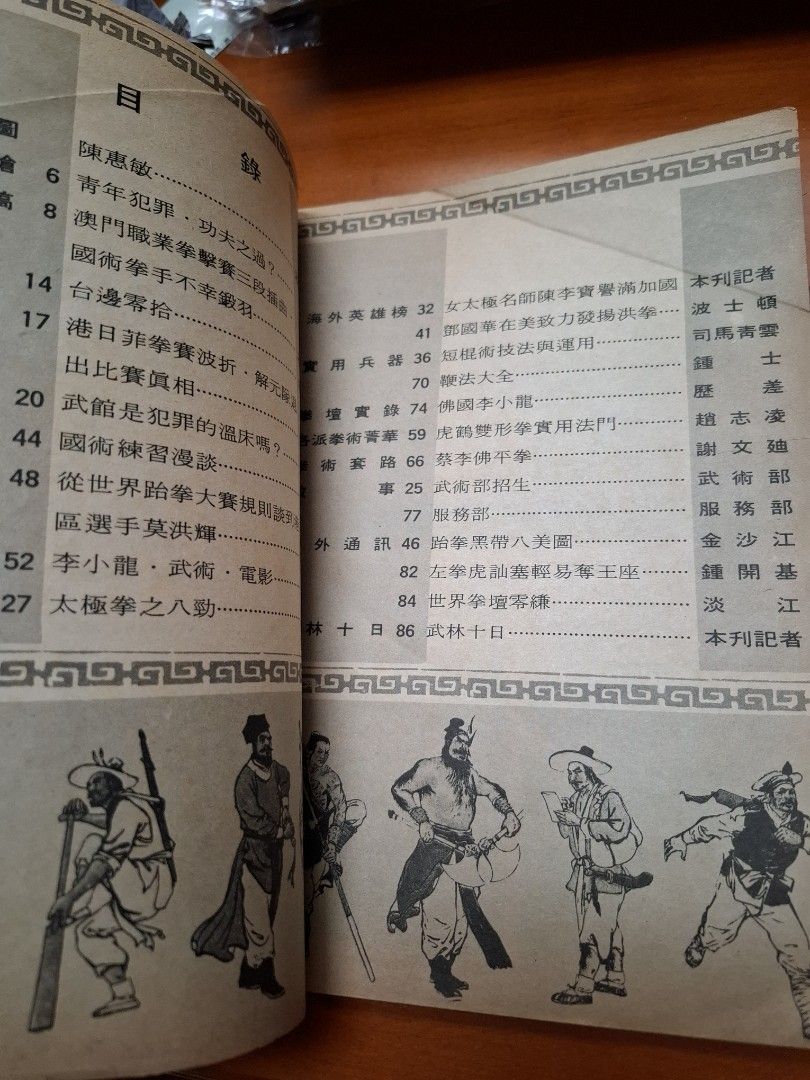 目錄
圖
陳惠敏
會 6 青年犯罪·功夫之過？
高 8 澳門職業拳擊賽三段插曲
國術拳手不幸鍛羽
14 台邊零拾
17 港日菲拳賽波折·解元
出比賽眞相
20 武館是犯罪的溫床嗎？
44 國術練習漫談
48 從世界跆拳大賽規則談到
區選手莫洪輝
52 李小龍·武術·電影
27 太極拳之八勁
海外英雄榜 32 女太極名師陳李寶譽滿加國 本刊記者
41 鄧國華在美致力發揚洪拳 波士頓
實用兵器 36 短棍術技法與運用 司馬青雲
70 鞭法大全 鍾士
壇實錄 74 佛國李小龍 歷差
各派拳術菁華 59 虎鶴雙形拳實用法門 趙志凌
術套路 66 蔡李佛平拳 謝文廸
事 25 武術部招生 武術部
77 服務部 服務部
外通訊 46 跆拳黑帶八美圖 金沙江
82 左拳虎訕塞輕易奪王座 鍾開基
84 世界拳壇零縑 淡江
林十日 86 武林十日 本刊記者